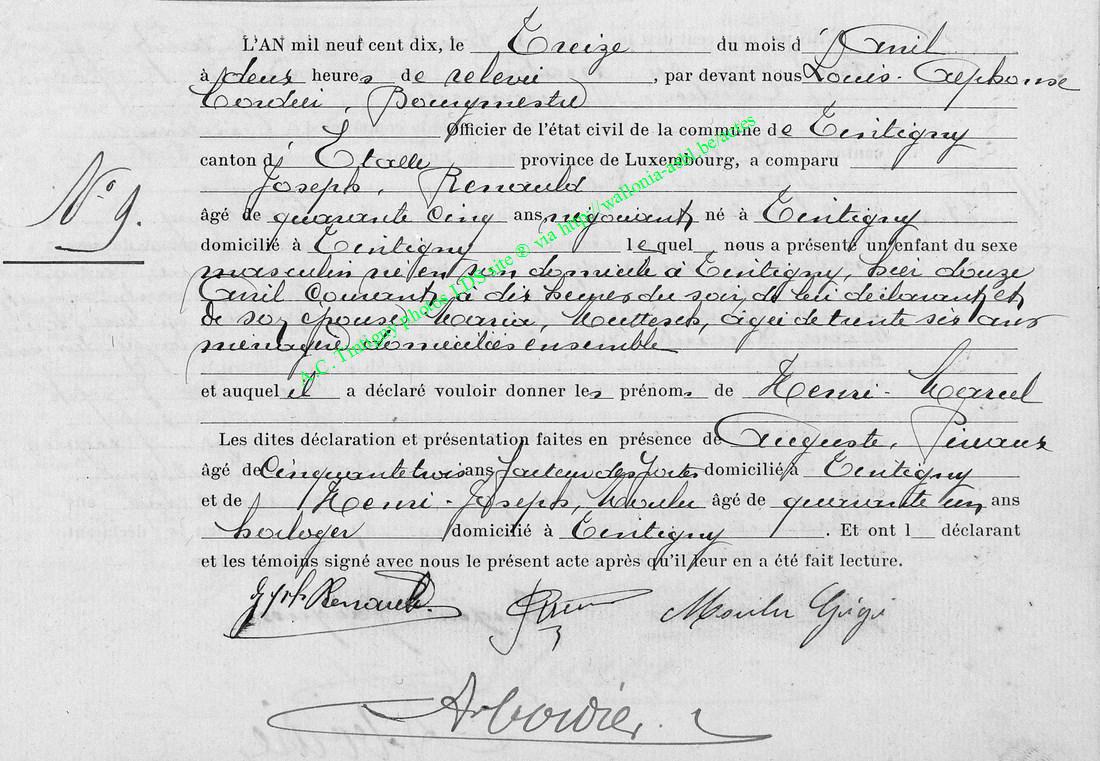 L'AN mil neuf cent dix, le Treize du mois d'Avril
à deux heures de relevée, par devant nous Louis-Alphonse
Cordier, Bourgmestre
Officier de l'état civil de la commune de Tintigny
canton d'Etalle province de Luxembourg, a comparu
Joseph, Renauld
N° 9.
âgé de quarante cinq ans négociant, né à Tintigny
domicilié à Tintigny lequel nous a présenté un enfant du sexe
masculin né en son domicile à Tintigny, hier douze
Avril courant, à dix heures du soir, de lui déclarant, et
de son épouse Maria, agée de trente six ans
ménagère domiciliés ensemble
et auquel il a déclaré vouloir donner les prénoms de Henri-Marcel
Les dites déclaration et présentation faites en présence de Auguste,
âgé de Cinquante trois ans facteur des postes domicilié à Tintigny
et de Henri-Joseph, Moulu âgé de quarante un ans
horloger domicilié à Tintigny. Et ont l déclarant
et les témoins signé avec nous le présent acte après qu'il leur en a été fait lecture.
Jph Renauld. Moulu Gigi
A. Cordier.
A.C. Tintigny photos LDS site ® via http://wallonia-asbl.be/actes